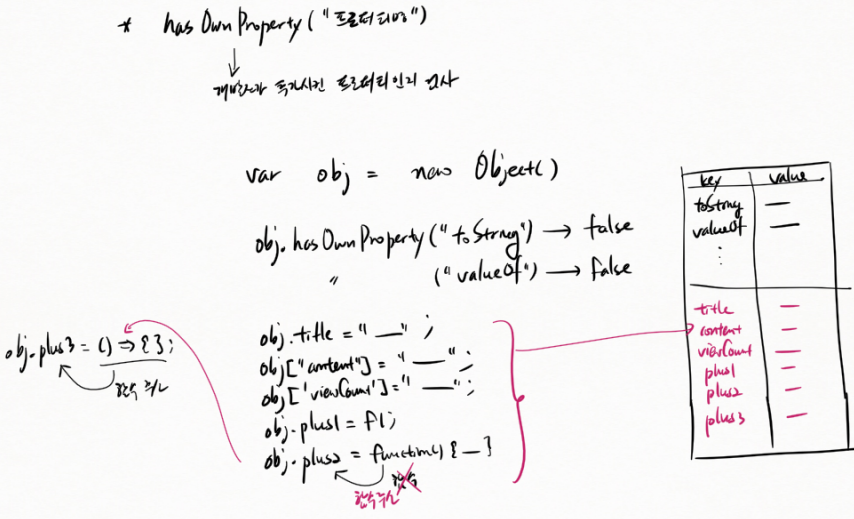 * hasOwnProperty("프로퍼티명")
개발자가 추가시킨 프로퍼티인지 검사
var obj = new Object()
obj.hasOwnProperty("toString") → false
" ("valueOf") → false
obj.title = "―";
obj["content"] = "―";
obj['viewCount']="―";
obj.plus1 = f1;
obj.plus2 = function() {―}
함수
함수주소
obj.plus3 = () => {};
함수 주소
key value
toString ―
valueOf ―
⋮
title ―
content ―
viewCount ―
plus1 ―
plus2 ―
plus3 ―